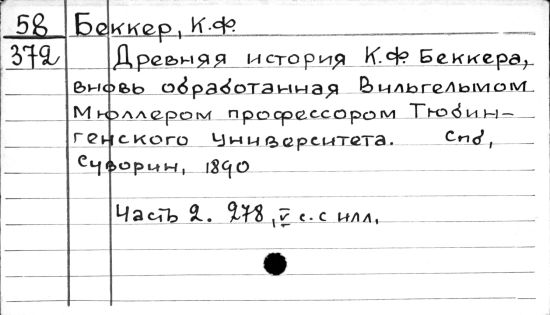 58 Беккер, К.Ф.
372 Древняя история К.Ф Беккера,
вновь обработанная Вильгельмом
Мюллером профессором Тюбин-
генского университета. Спб,
Суворин, 1890
Часть 2. 278, V с. с илл.